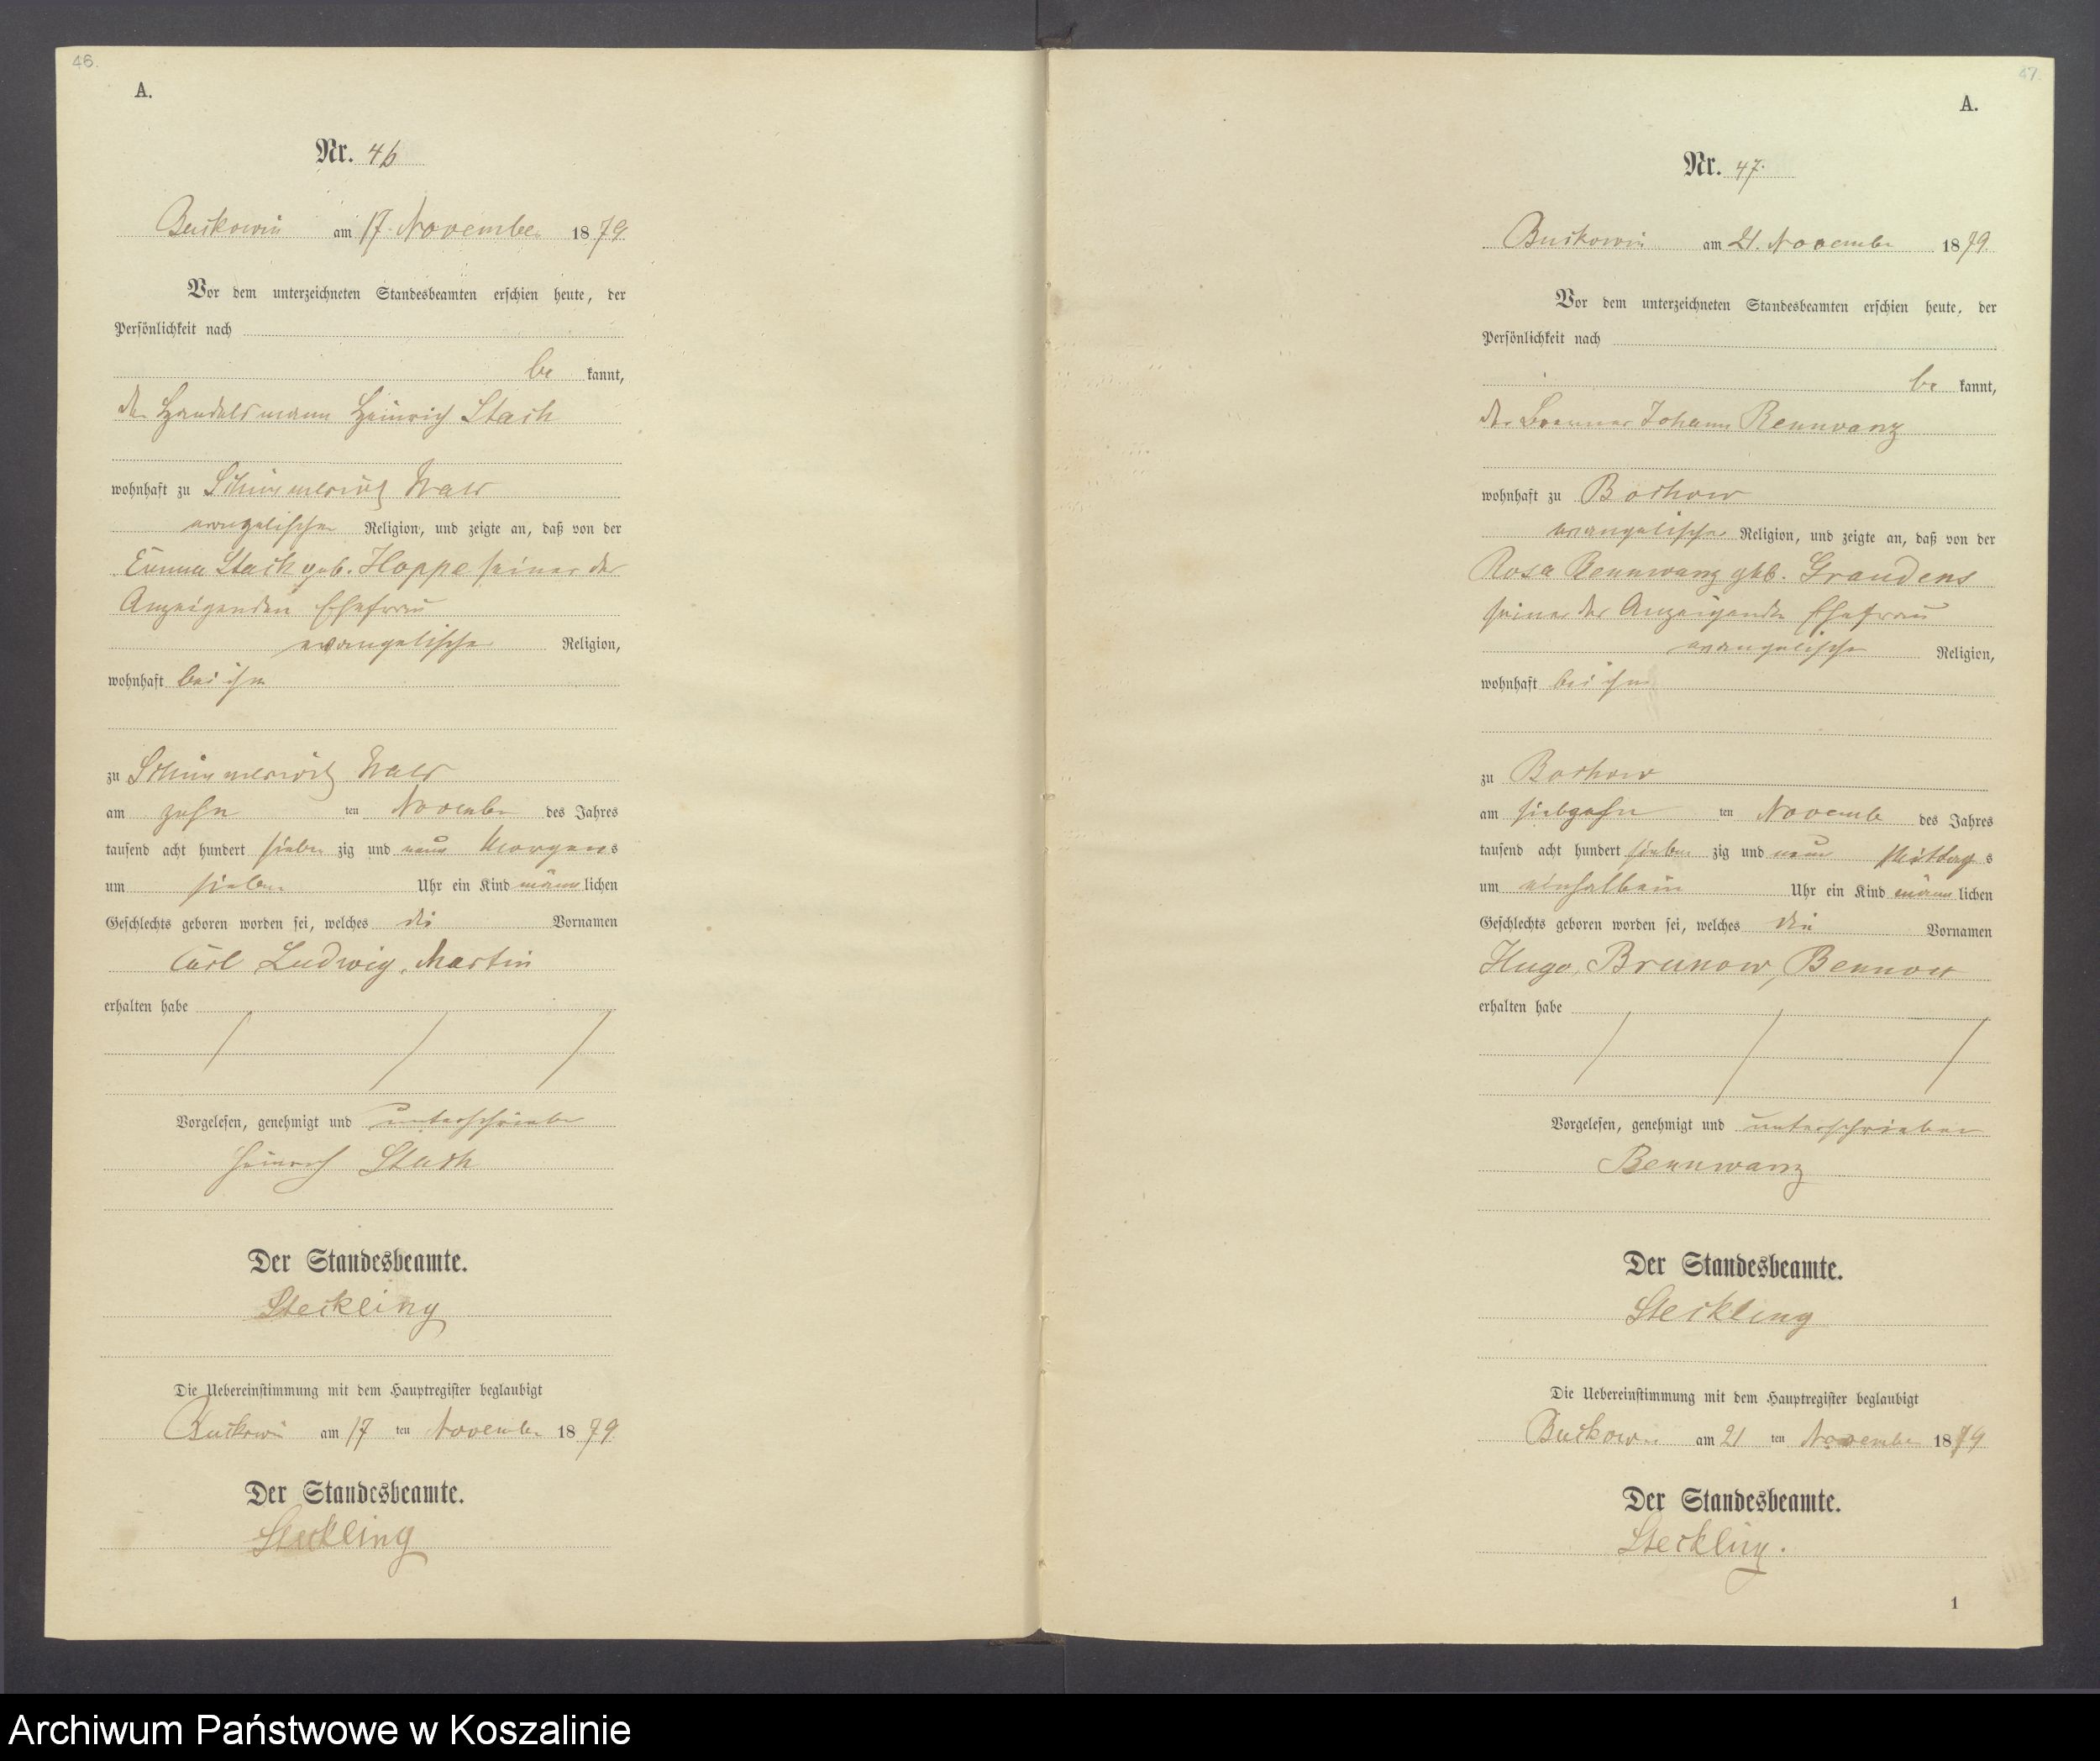 46.
A.
Nr. 46
Buckowin am 17. November 1879
Vor dem unterzeichneten Standesbeamten erschien heute, der
Persönlichkeit nach
be kannt,
der Handelsmann Heinrich Stach
wohnhaft zu Schimmerwitz Wald
evangelischer Religion, und zeigte an, daß von der
Emma Stach geb. Hoppe seiner des
Anzeigenden Ehefrau
evangelischer Religion,
wohnhaft bei ihm
zu Schimmerwitz Wald
am zehn ten November des Jahres
tausend acht hundert sieben zig und neun Morgens
um sieben Uhr ein Kind männlichen
Geschlechts geboren worden sei, welches die Vornamen
Carl Ludwig Martin
erhalten habe
Vorgelesen, genehmigt und unterschrieben
Heinrich Stach
Der Standesbeamte.
Steckling
Die Uebereinstimmung mit dem Hauptregister beglaubigt
Buckowin am 17 ten November 1879
Der Standesbeamte.
Steckling
47.
A.
Nr. 47.
Buckowin am 21. November 1879
Vor dem unterzeichneten Standesbeamten erschien heute, der
Persönlichkeit nach
be kannt,
der Johann Bennwanz
wohnhaft zu Bochow
evangelischer Religion, und zeigte an, daß von der
Rosa Bennwanz geb. Graudens
seiner des Anzeigenden Ehefrau
evangelischer Religion,
wohnhaft bei ihm
zu Bochow
am siebzehn ten November des Jahres
tausend acht hundert sieben zig und neun Mittags
um einhalbein Uhr ein Kind männlichen
Geschlechts geboren worden sei, welches die Vornamen
Hugo, Brunow, Bennow
erhalten habe
Vorgelesen, genehmigt und unterschrieben
Bennwanz
Der Standesbeamte.
Steckling
Die Uebereinstimmung mit dem Hauptregister beglaubigt
Buckowin am 21 ten November 1879
Der Standesbeamte.
Steckling.
1
Archiwum Państwowe w Koszalinie